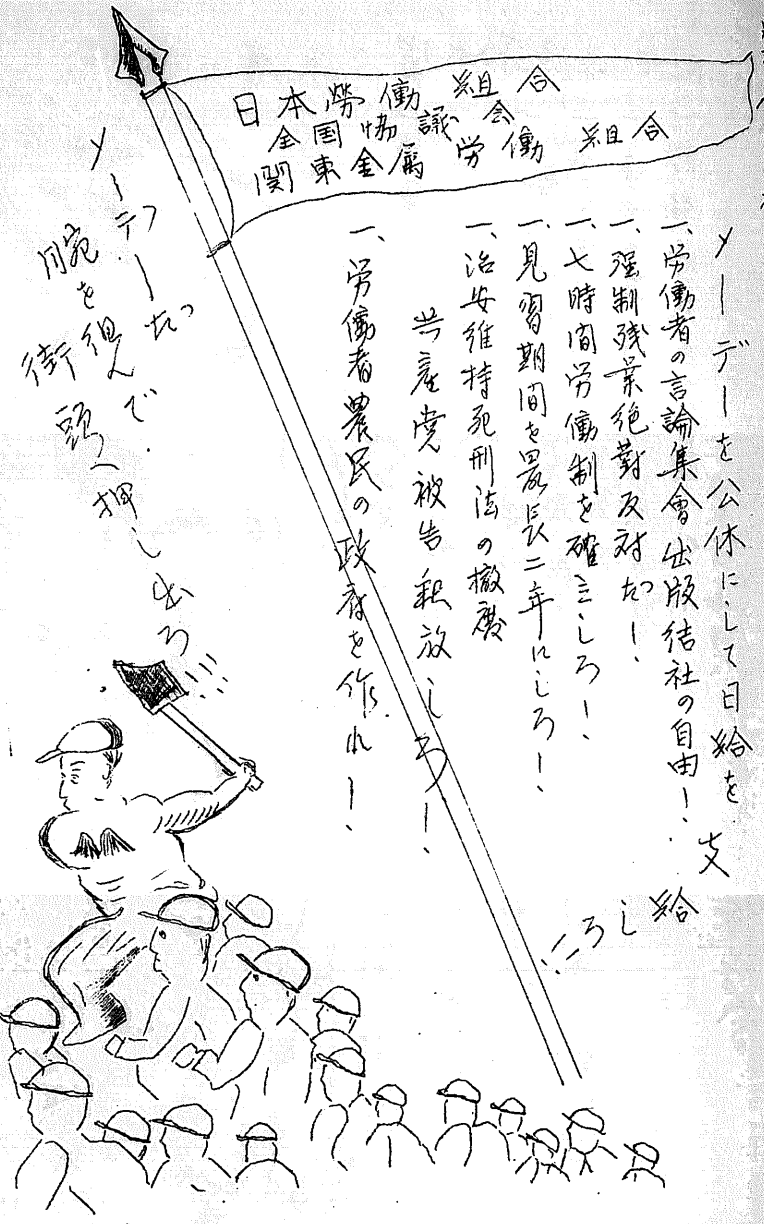 日本勞働組合
全国協議会
関東金属労働組合
メーデーを公休にして日給を支
給しろ!!
一、労働者の言論集會出版結社の自由!
一、强制残業絶對反対だっ!
一、七時間労働制を確立しろ!
一、見習期間を最長二年にしろ!
一、治安維持死刑法の撤廢
共産党被告釈放しろ!
一、労働者農民の政府を作れ!
メーデーだっ
腕を組んで.
街頭へ押し出ろ